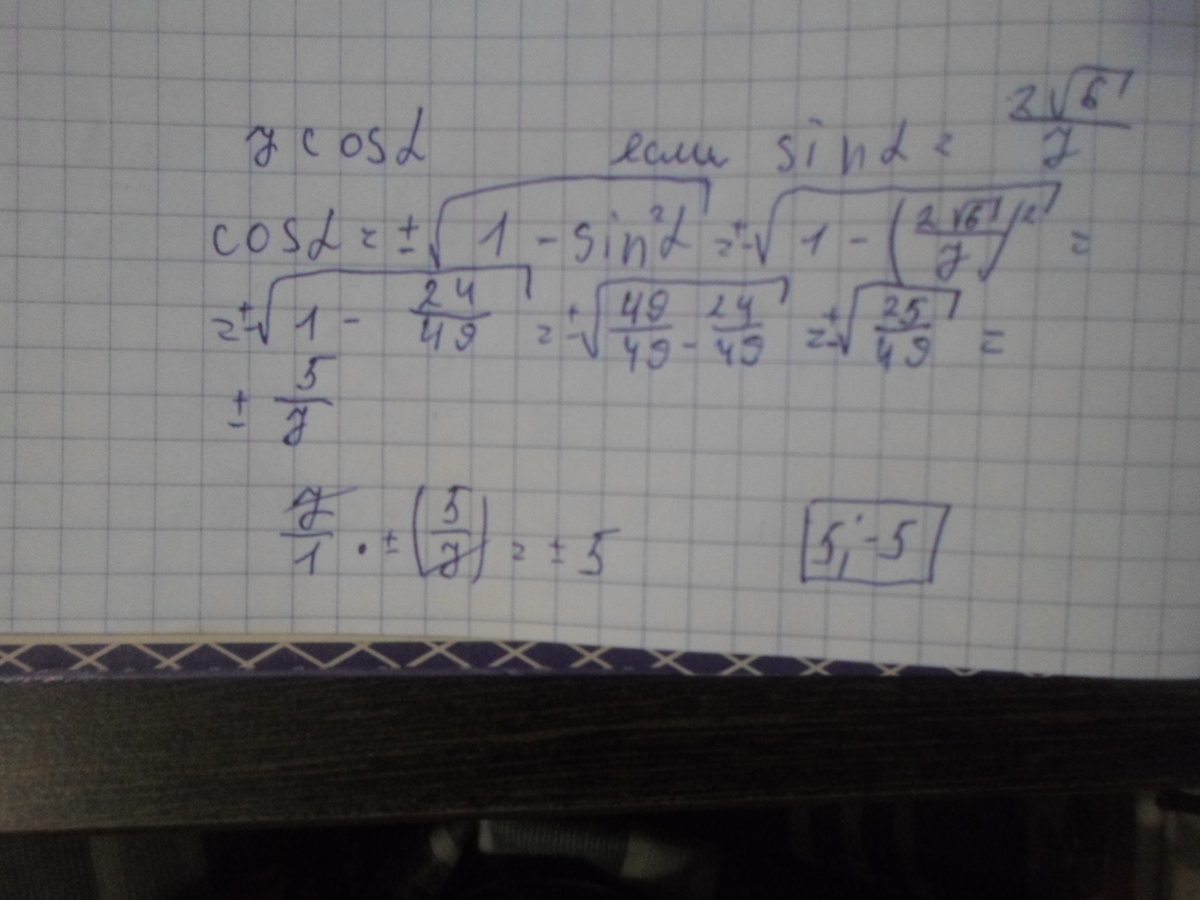 7 cosα если sinα = 2√6/7
cosα = ±√(1 - sin²α) = ±√(1 - (2√6/7)²) =
= ±√(1 - 24/49) = ±√(49/49 - 24/49) = ±√(25/49) =
± 5/7
7/1 · ± (5/7) = ± 5
5; -5